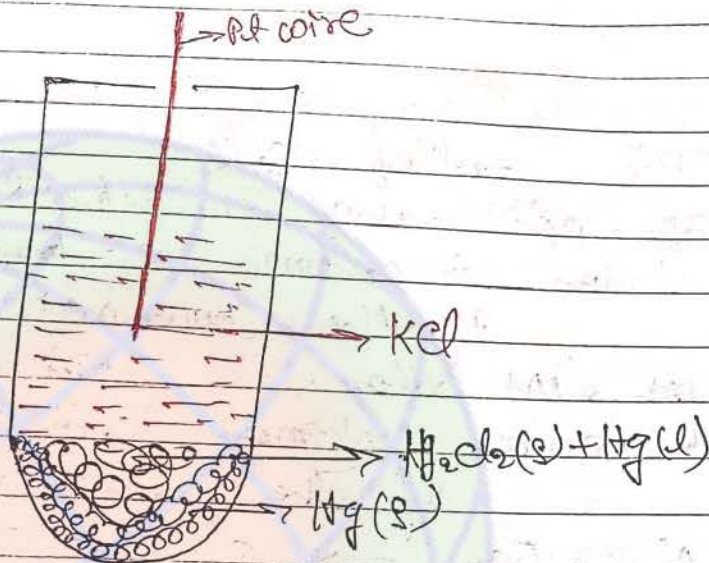 Pt wire
KCl
Hg₂Cl₂(s) + Hg(l)
Hg(l)